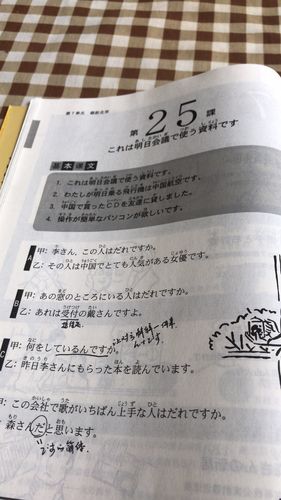 第7单元
第25課
これは明日会議で使う資料です
基本课文
1. これは明日会議で使う資料です。
2. わたしが明日乗る飛行機は中国航空です。
3. 中国で買ったCDを友達に貸しました。
4. 操作が簡単なパソコンが欲しいです。
A
甲: 李さん、この人はだれですか。
乙: その人は中国でとても人気がある女優です。
B
甲: あの窓のところにいる人はだれですか。
乙: あれは受付の戴さんですよ。
C
甲: 何をしているんですか。
乙: 昨日李さんにもらった本を読んでいます。
甲: この会社で歌がいちばん上手な人はだれですか。
森さんだと思います。